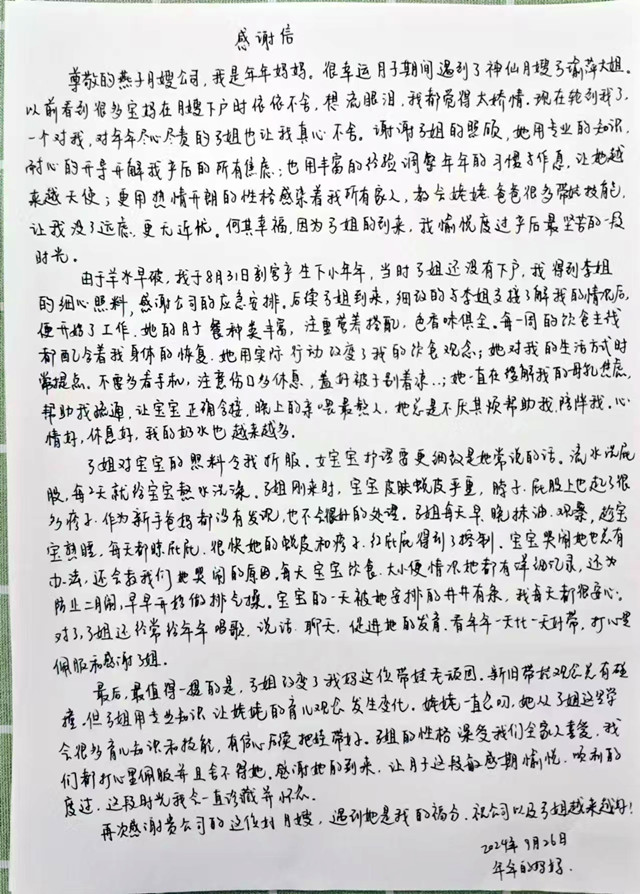 感谢信
尊敬的燕子月嫂公司，我是年年妈妈。很幸运月子期间遇到了神仙月嫂弓瑜萍大姐。
以前看到很多宝妈在月嫂下户时依依不舍，想流眼泪，我都觉得太矫情。现在轮到我了，
一个对我，对年年尽心尽责的弓姐也让我真心不舍。谢谢弓姐的照顾，她用专业的知识，
耐心的开导开解我产后的所有焦虑；也用丰富的经验调整年年的习惯与作息，让她越
来越天使；更用热情开朗的性格感染着我所有家人，教会姥姥爸爸很多带娃技能，
让我没了远虑，更无近忧。何其幸福，因为弓姐的到来，我愉悦度过产后最坚苦的一段
时光。
由于羊水早破，我于8月31日剖宫产生下小年年，当时弓姐还没有下户，我得到李姐
的细心照料，感谢公司的应急安排。后续弓姐到来，细致的与李姐交接了解我的情况后，
便开始了工作。她的月子餐种类丰富，注重营养搭配，色香味俱全。每一周的饮食主线
都配合着我身体的恢复。她用实际行动改变了我的饮食观念；她对我的生活方式时
常提点。不要多看手机，注意伤口多休息，盖好被子别着凉..；她一直在缓解我的母乳焦虑，
帮助我疏通，让宝宝正确含接，晚上的亲喂最熬人，她总是不厌其烦帮助我，陪伴我。心
情好，休息好，我的奶水也越来越多。
弓姐对宝宝的照料令我折服。女宝宝护理需更细致是她常说的话。流水洗屁
股，每2天就给宝宝热水洗澡。弓姐刚来时，宝宝皮肤蜕皮严重，脖子.屁股上也起了很
多疹子.作为新手爸妈都没有发现，也不会很好的处理。弓姐每天早.晚抹油.观察，趁宝
宝熟睡，每天都晾屁屁.很快她的蜕皮和疹子.红屁屁得到了控制.宝宝哭闹她也总有
办法，还会教我们她哭闹的原因。每天宝宝饮食.大小便情况她都有详细记录，还为
防止二月闹，早早开始做排气操。宝宝的一天被她安排的井井有条，我每天都很安心。
对了，弓姐还经常给年年唱歌.说话.聊天，促进她的发育.看年年一天比一天好带，打心里
佩服和感谢弓姐。
最后，最值得一提的是，弓姐改变了我妈这位带娃老顽固。新旧带娃观念总有碰
撞，但弓姐用专业知识让姥姥的育儿观念发生变化。姥姥一直念叨，她从弓姐这学
会很多育儿知识和技能，有信心后续把娃带好。弓姐的性格深受我们全家人喜爱，我
们都打心里佩服并且舍不得她。感谢她的到来，让月子这段敏感期愉悦，顺利的
度过，这段时光我会一直珍藏并怀念.
再次感谢贵公司的这位好月嫂，遇到她是我的福分，祝公司以及弓姐越来越好！
2024年9月26日
年年的妈妈.